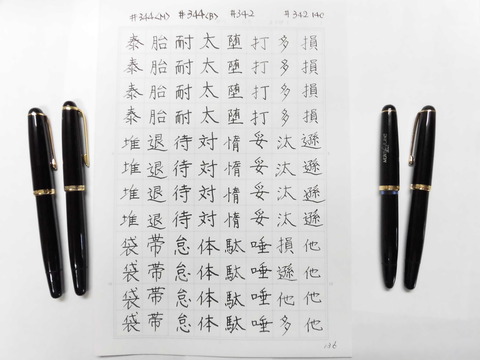 #344(M) #344(B) #342 #342 14C
泰 胎 耐 太 堕 打 多 損
泰 胎 耐 太 堕 打 多 損
泰 胎 耐 太 堕 打 多 損
泰 胎 耐 太 堕 打 多 損
堆 退 待 対 惰 妥 汰 遜
堆 退 待 対 惰 妥 汰 遜
堆 退 待 対 惰 妥 汰 遜
堆 退 待 対 惰 妥 汰 遜
袋 帯 怠 体 駄 唾 損 他
袋 帯 怠 体 駄 唾 遜 他
袋 帯 怠 体 駄 唾 他 他
袋 帯 怠 体 駄 唾 多 他
136